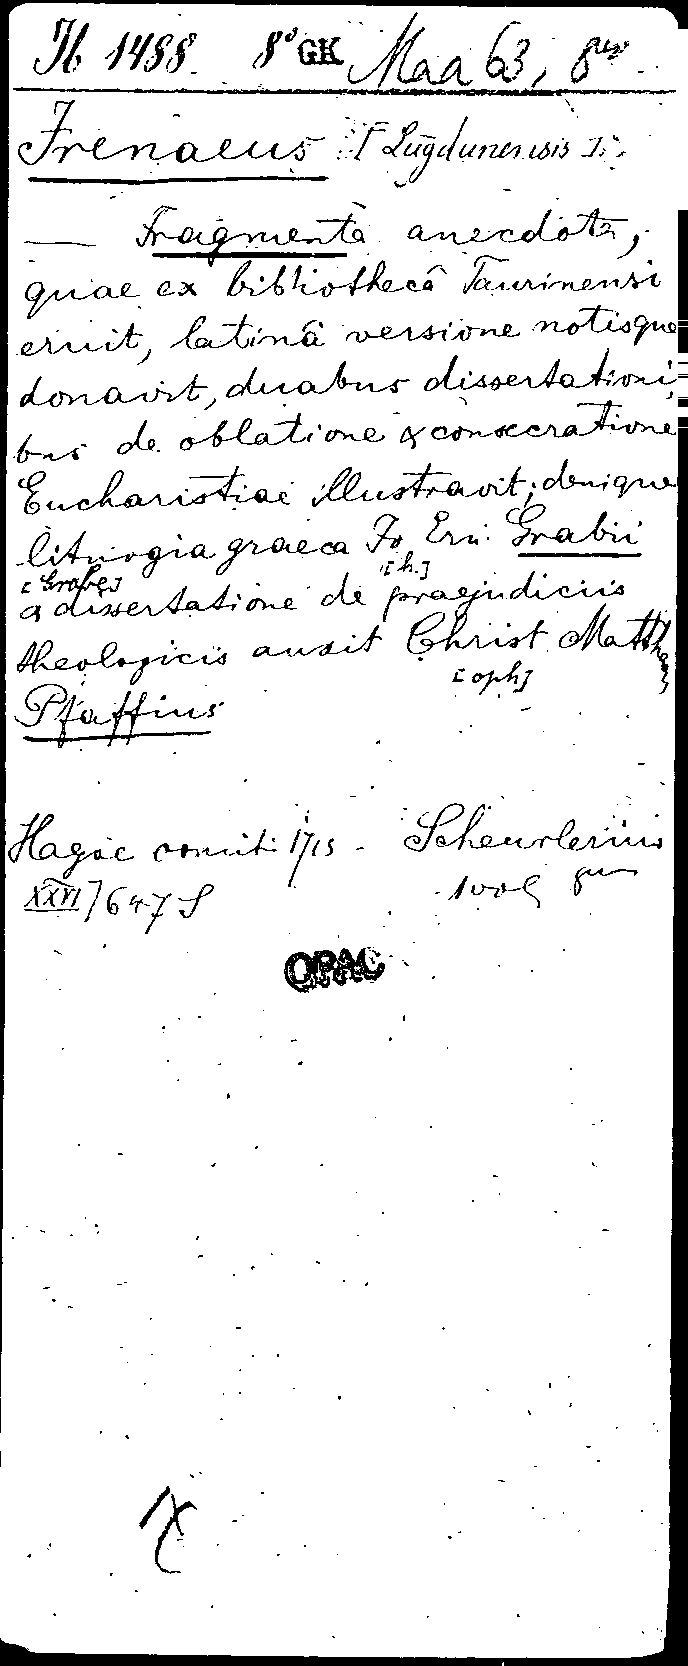 Ib 1488. 8° GK Maa 63, 8vo
Irenaeus [Lugdunensis].
— Fragmenta anecdota,
quae ex bibliothecâ Taurinensi
eruit, latinâ versione notisque
donavit, duabus dissertationi
bus de oblatione & consecratione
Eucharistiae illustravit; denique
liturgia graeca Jo Ern. Grabii
[Grabe] [h.]
& dissertatione de praejudiciis
theologicis auxit Christ Matthaeus
[oph]
Pfaffius
Hagae comiti 1715 - Scheurlerius
XXVI] 647 S 1 vol 8vo
OPAC